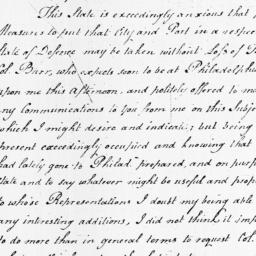 This State is exceedingly anxious that
Measures to put that City and Port in a respec
State of Defence may be taken without Loss of
Col. Burr, who expects soon to be at Philadelph
upon me this afternoon, and politely offered to
my Communications to you from me on this Subje
which I might desire and indicate; but being
present exceedingly occupied and knowing that
had lately gone to Philad. prepared, and on purp
State and to say whatever might be useful and prop
to whose Representations I doubt my being able
any interesting additions, I did not think it imp
to do more than in general terms to request Col.